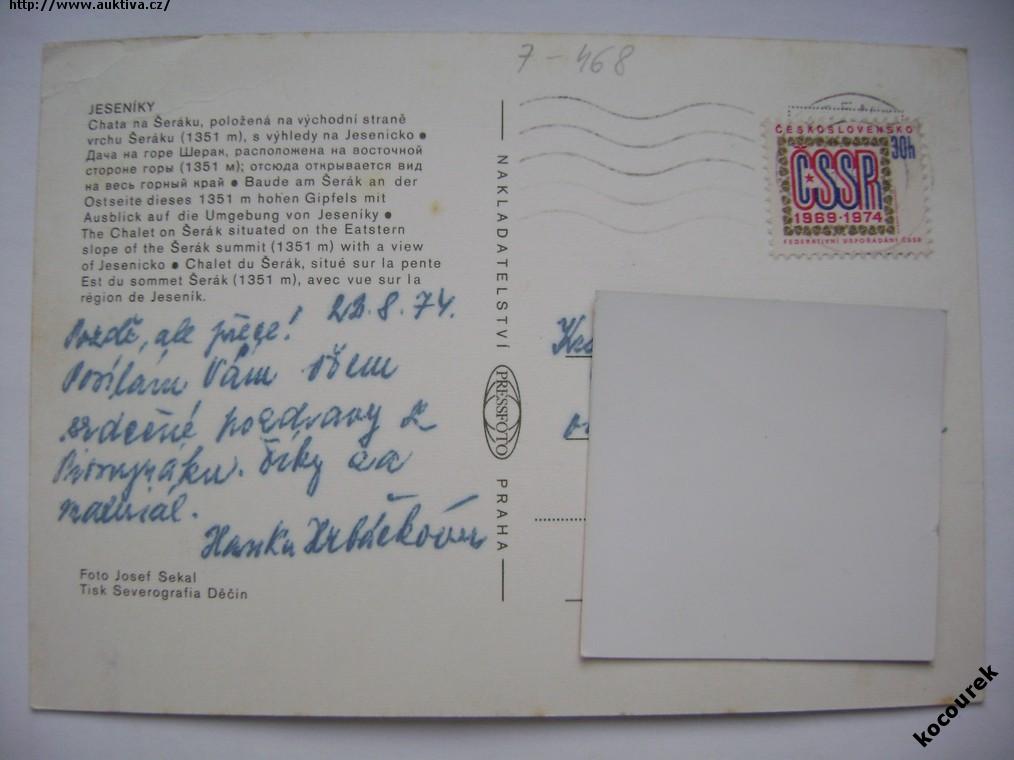 http://www.auktiva.cz/
7-468
JESENÍKY
Chata na Šeráku, položená na východní straně
vrchu Šeráku (1351 m), s výhledy na Jesenicko •
Дача на горе Шерак, расположена на восточной
стороне горы (1351 м); отсюда открывается вид
на весь горный край • Baude am Šerák an der
Ostseite dieses 1351 m hohen Gipfels mit
Ausblick auf die Umgebung von Jeseníky •
The Chalet on Šerák situated on the Eatstern
slope of the Šerák summit (1351 m) with a view
of Jesenicko • Chalet du Šerák, situé sur la pente
Est du sommet Šerák (1351 m), avec vue sur la
région de Jeseník.
22.8.74.
Pozdě, ale přece!
Posílám Vám všem
srdečné pozdravy z
Díky za
materiál.
Hanka Hrbáčková
Foto Josef Sekal
Tisk Severografia Děčín
NAKLADATELSTVÍ
PRESSFOTO
PRAHA
ČESKOSLOVENSKO
30h
ČSSR
1969-1974
FEDERATIVNÍ USPOŘÁDÁNÍ ČSSR
kocourek